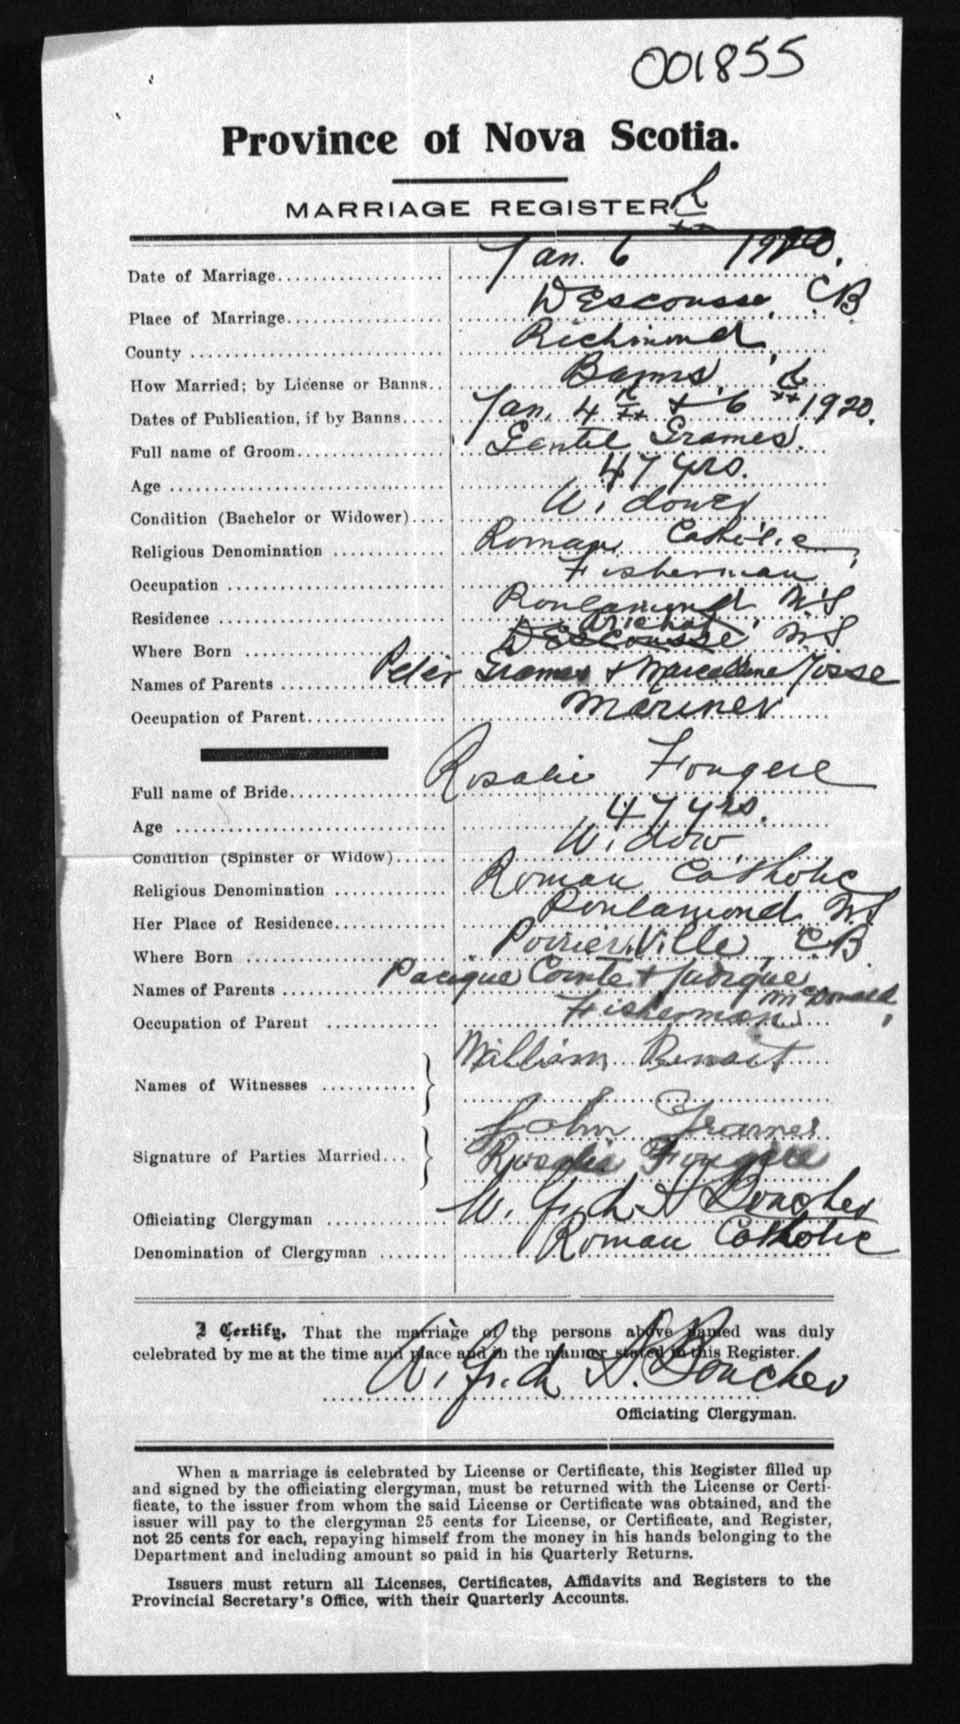 001855
Province of Nova Scotia.
MARRIAGE REGISTER
Date of Marriage Jan. 6th 1920.
Place of Marriage D'Escousse, C.B.
County Richmond,
How Married; by License or Banns.. Banns,
Dates of Publication, if by Banns Jan. 4th & 6th 1920.
Full name of Groom Gentil Grames.
Age 47 yrs.
Condition (Bachelor or Widower) Widower
Religious Denomination Roman Catholic,
Occupation Fisherman
Residence Poulamond, N.S.
Arichat,
Where Born D'Escousse N.S
Names of Parents Peter Grames & Marcelline Josse
Occupation of Parent Mariner
Full name of Bride Rosalie Fougere
Age 47 yrs.
Condition (Spinster or Widow) Widow
Religious Denomination Roman Catholic
Her Place of Residence Poulamond N.S
Where Born Poirier Ville, C.B.
Names of Parents Pacifique Comte & Judique
McDonald,
Occupation of Parent Fisherman
William Benoit
Names of Witnesses
John Grames
Signature of Parties Married... Rosalie Fougere
Officiating Clergyman Wilfrid A Boucher
Denomination of Clergyman Roman Catholic
I Certify, That the marriage of the persons above named was duly
celebrated by me at the time and place and in the manner stated in this Register.
Wilfrid A. Boucher
Officiating Clergyman.
When a marriage is celebrated by License or Certificate, this Register filled up
and signed by the officiating clergyman, must be returned with the License or Certi-
ficate, to the issuer from whom the said License or Certificate was obtained, and the
issuer will pay to the clergyman 25 cents for License, or Certificate, and Register,
not 25 cents for each, repaying himself from the money in his hands belonging to the
Department and including amount so paid in his Quarterly Returns.
Issuers must return all Licenses, Certificates, Affidavits and Registers to the
Provincial Secretary's Office, with their Quarterly Accounts.